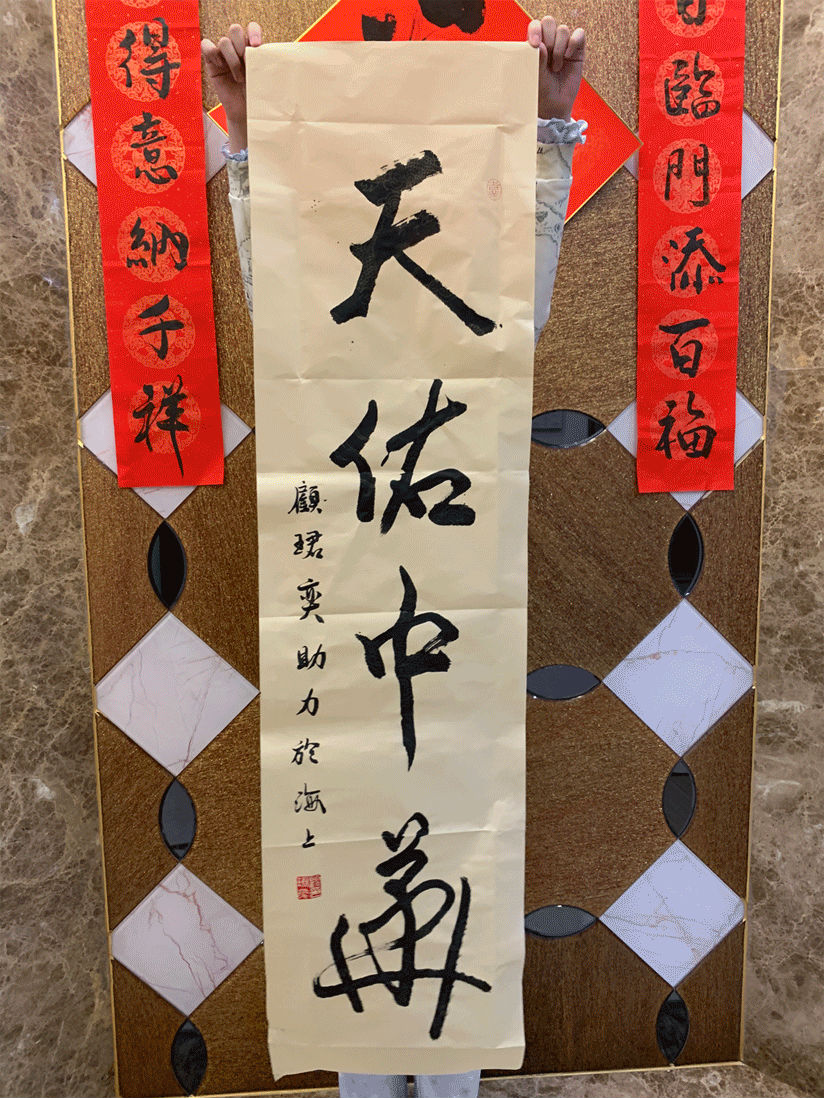 臨門添百福
天佑中華
顧珺奕助力於海上
得意納千祥